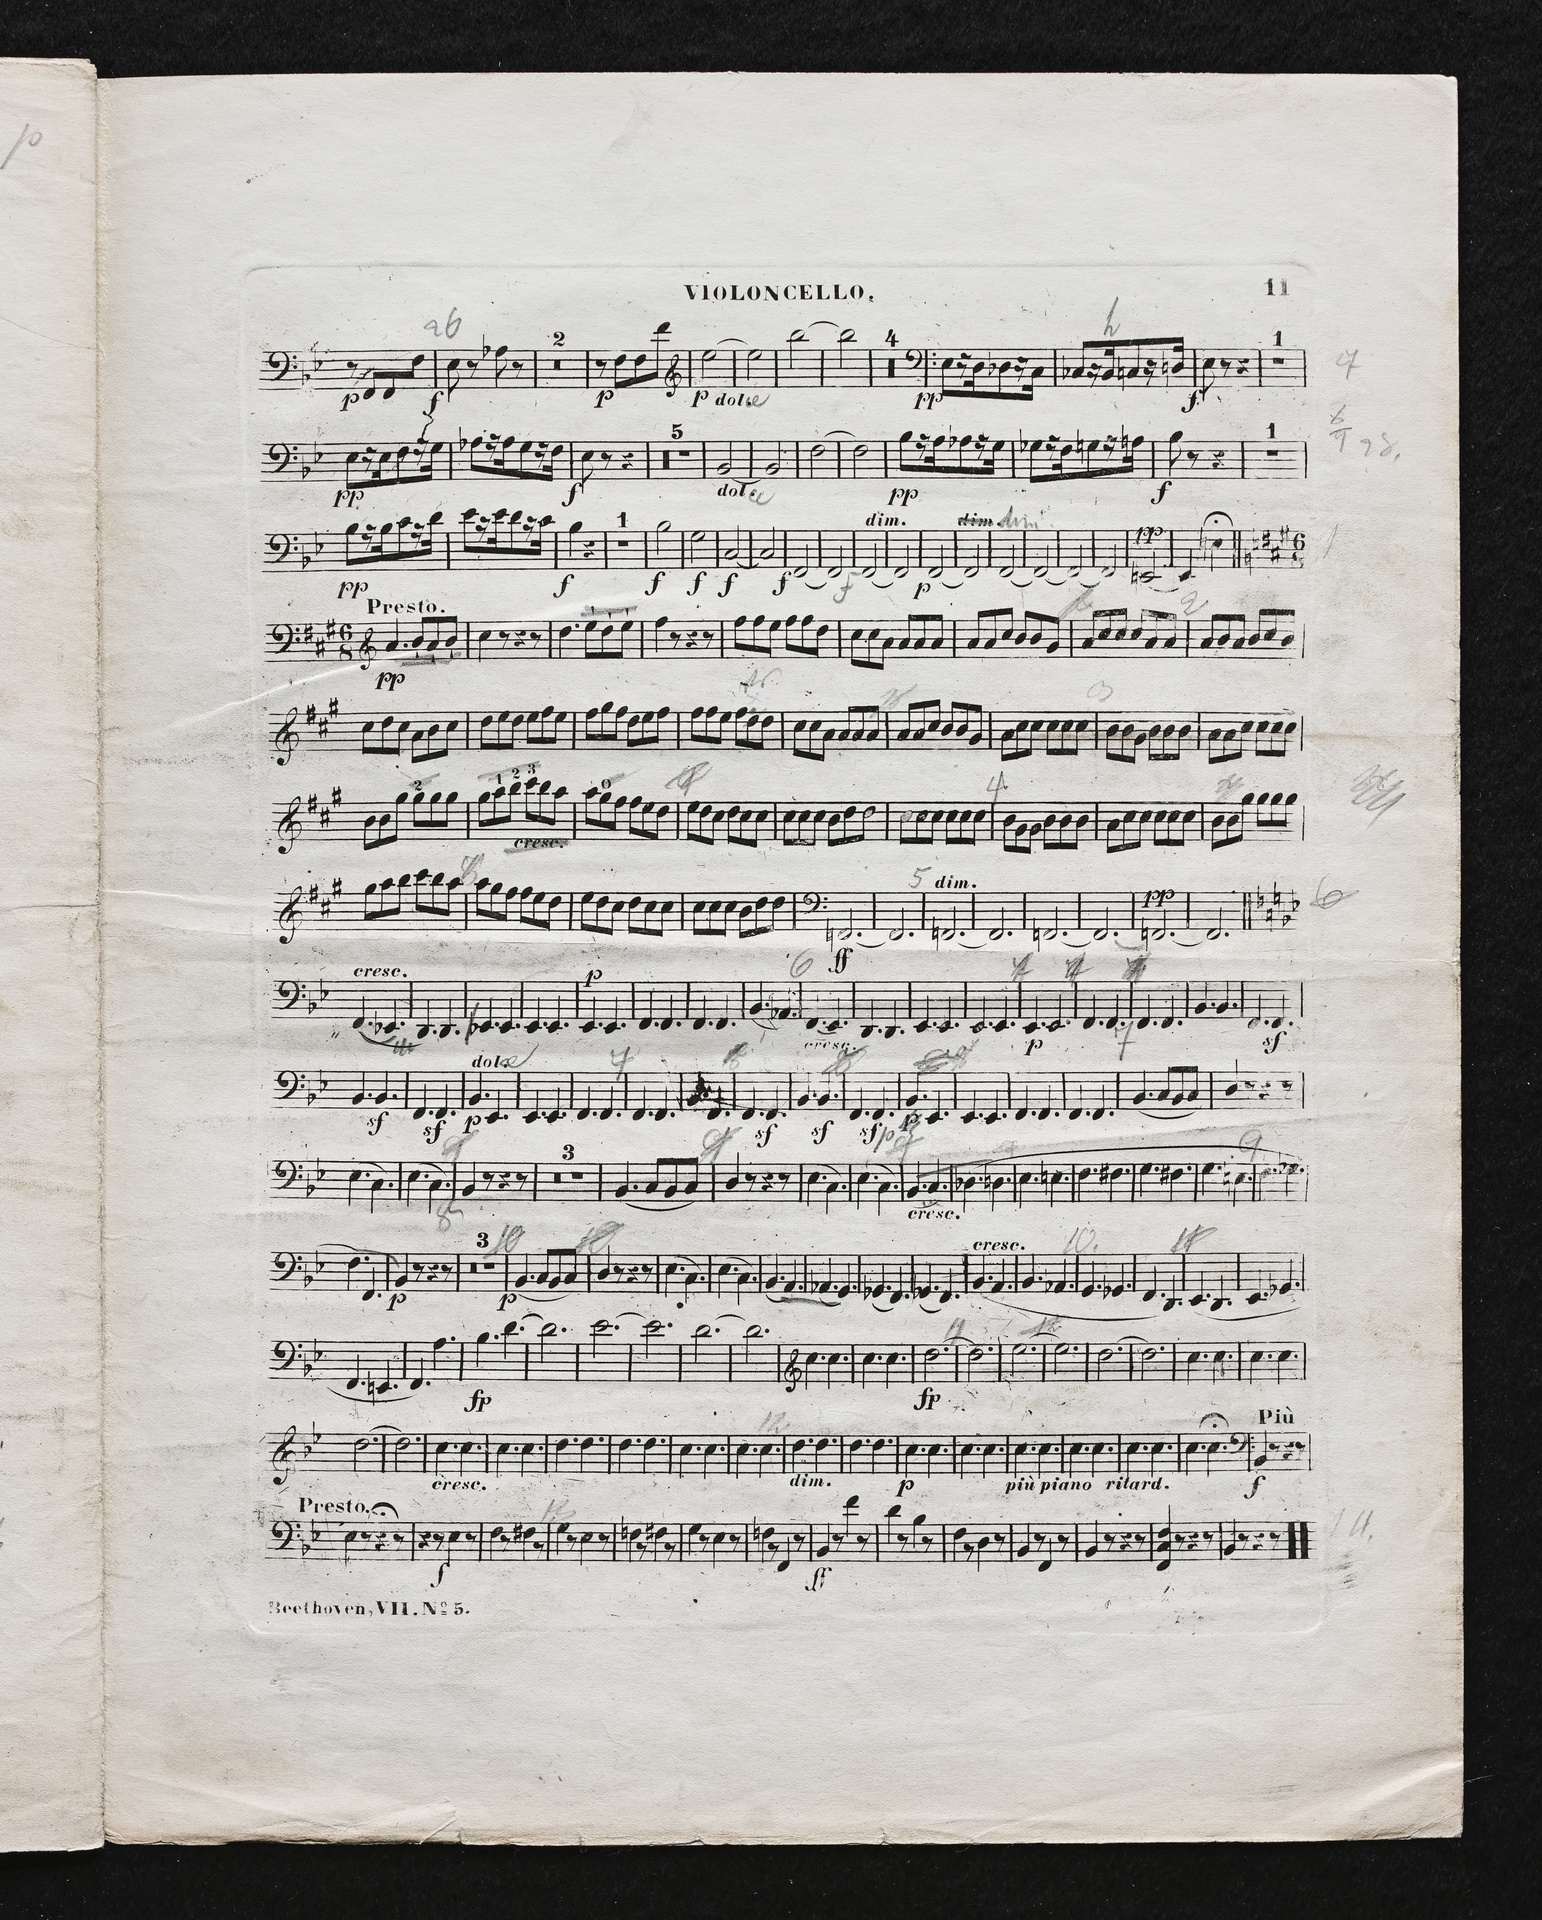 VIOLONCELLO.
11
p
26
2
4
h
1
4
p f p p dolce pp f
5
1
pp f dolce pp f
1
dim. dim. dim pp
6
8
pp f f f f f f p
Presto.
2
6
8
pp
3
2
1 2 3
0
4
cresc.
5 dim. pp
6
ff
cresc. p 6
cresc. p 7 sf
dolce 7
sf sf p sf sf sf p p
3
9
cresc.
3 10 cresc. 10.
p p
11
fp fp
12 Più
cresc. dim. p più piano ritard. f
Presto.
14.
f ff
Beethoven, VII. Nº 5.